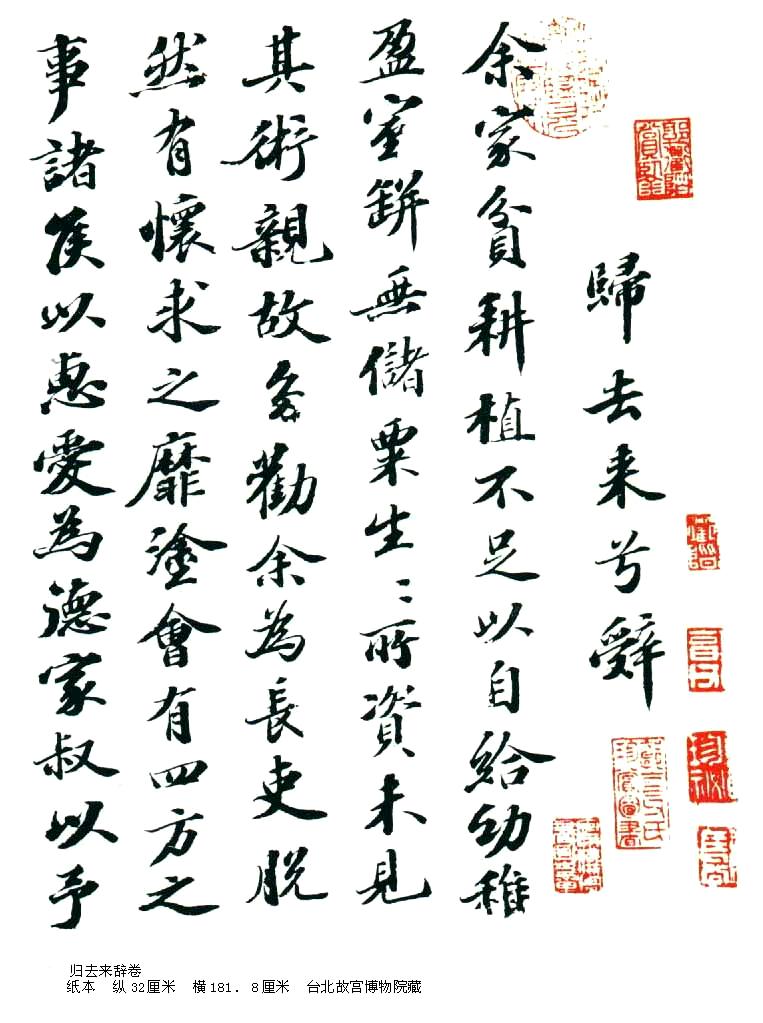 歸去来兮辭
余家貧耕植不足以自給幼稚
盈室缾無儲粟生〻所資未見
其術親故多勸余為長吏脱
然有懷求之靡塗會有四方之
事諸侯以惠愛為德家叔以予
归去来辞卷
纸本 纵32厘米 横181．8厘米 台北故宫博物院藏